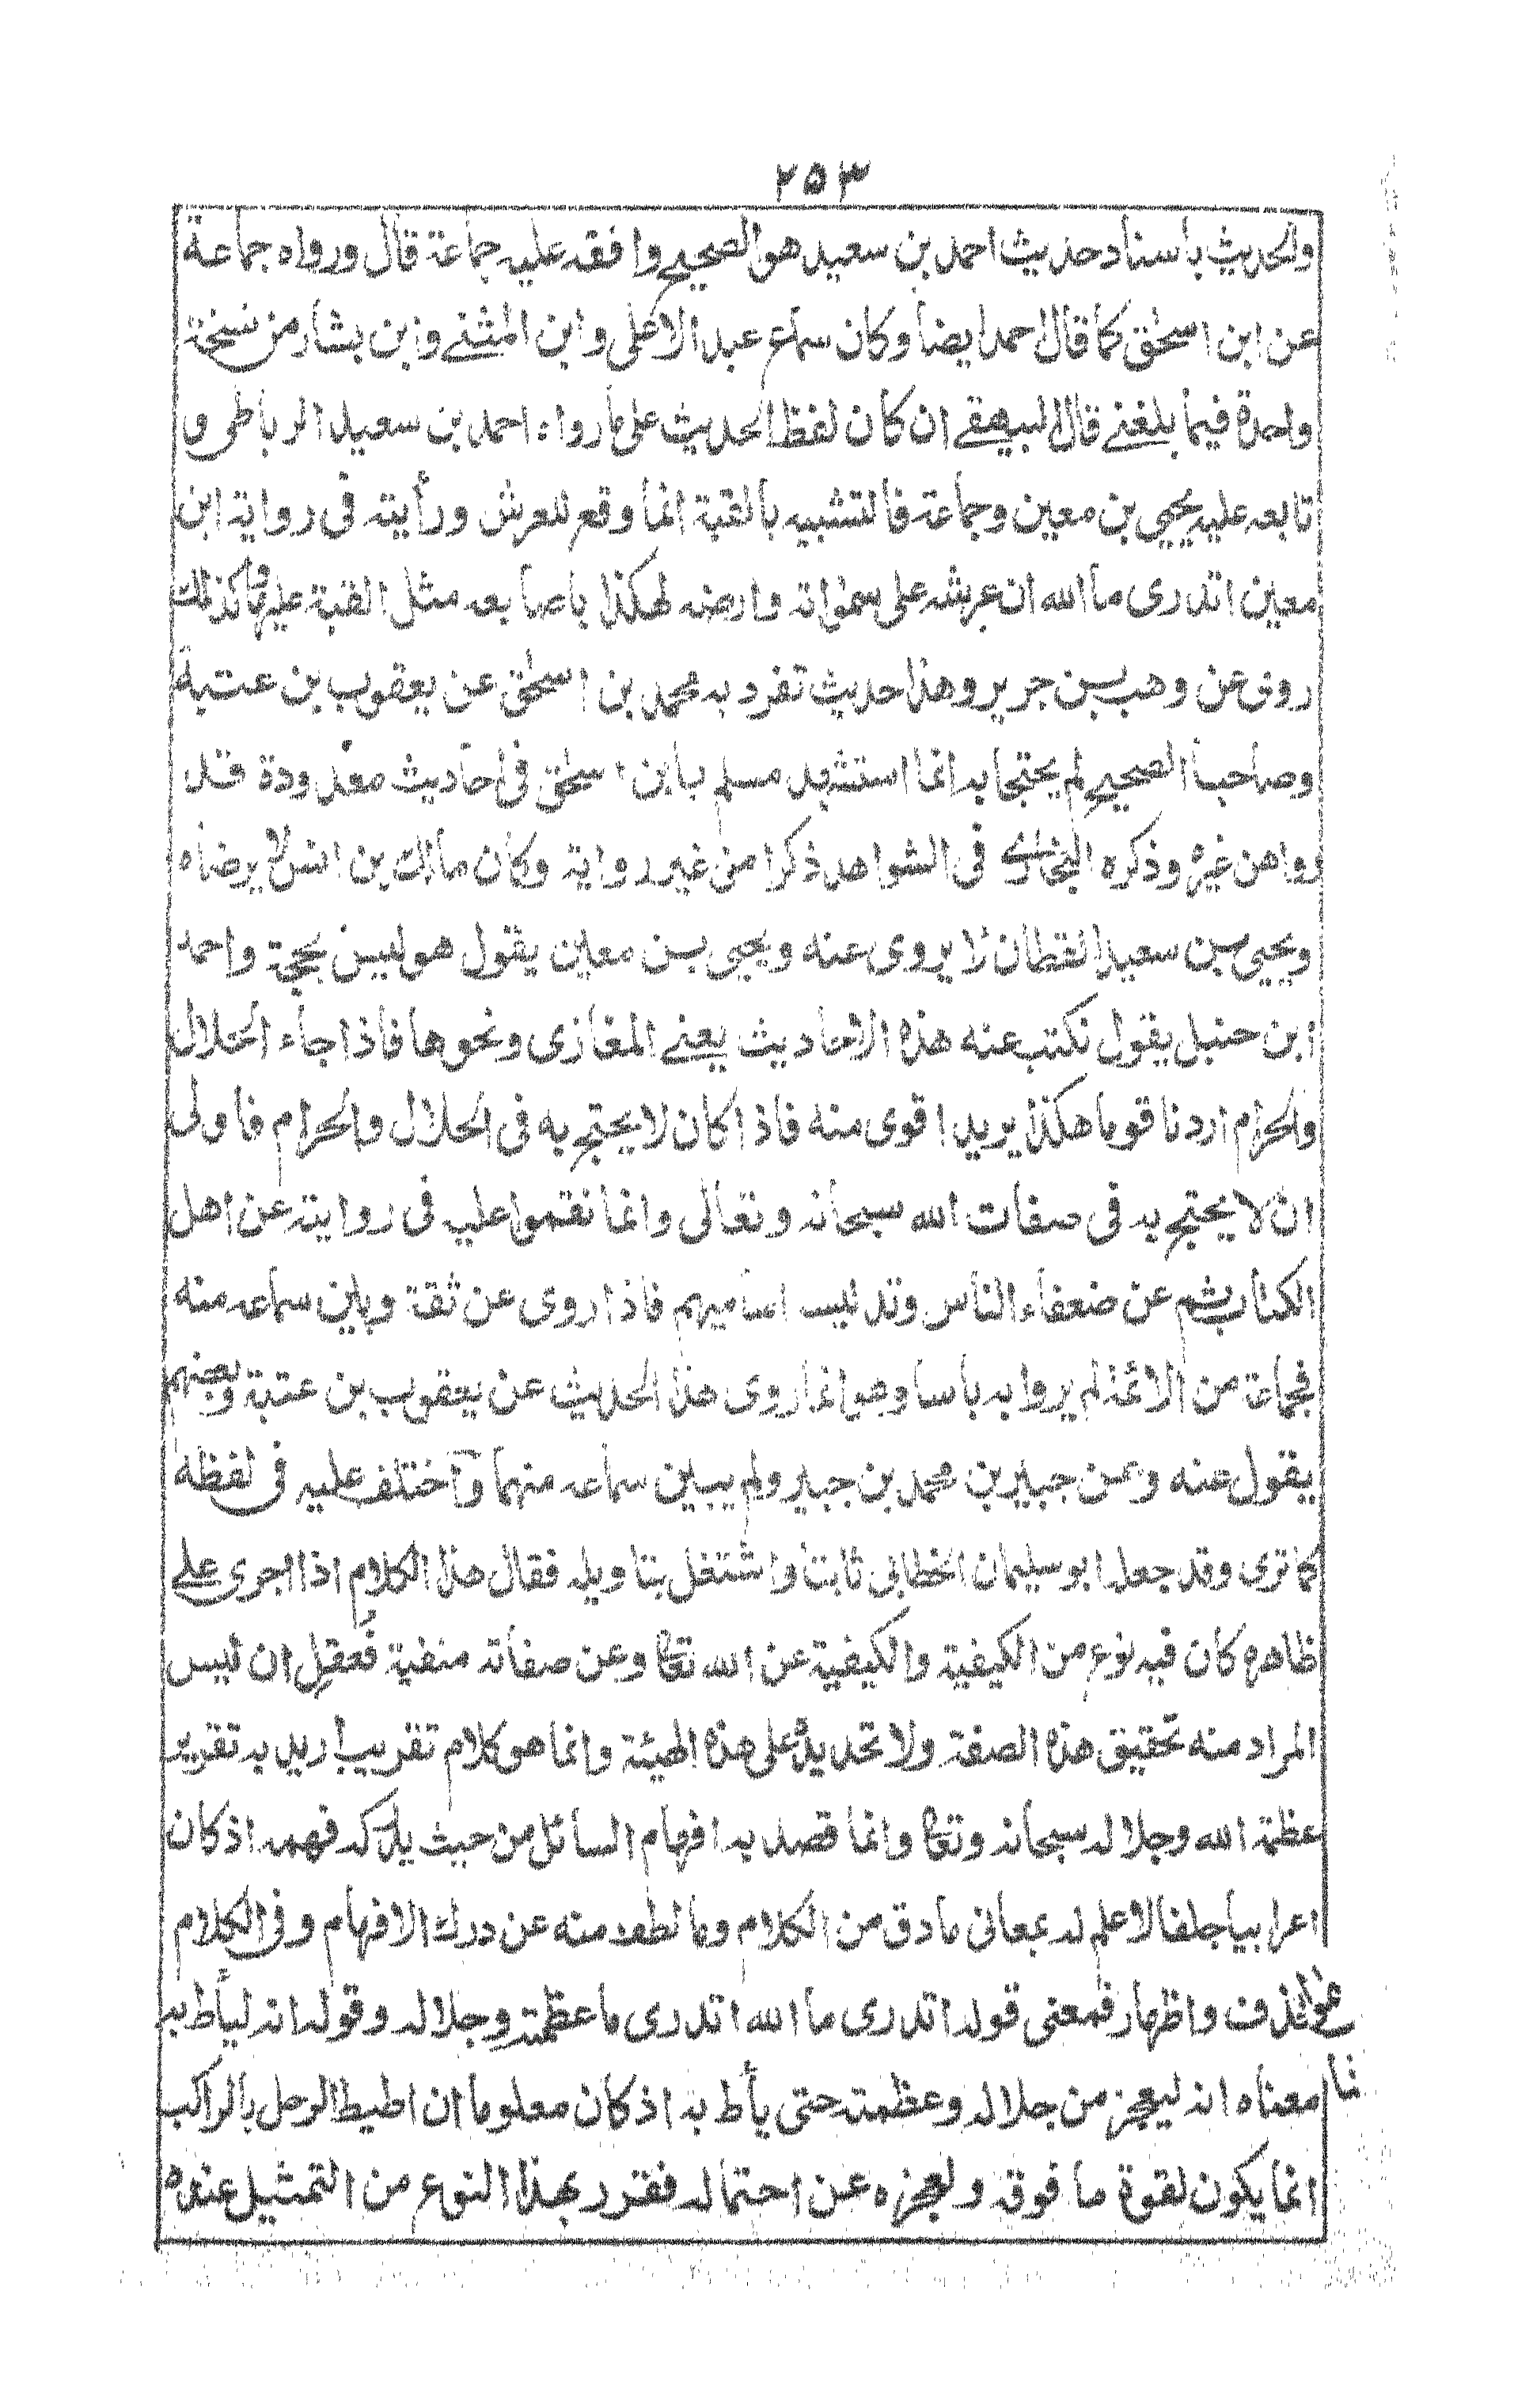 ٢٥٣
والحديث بأسناد حديث احمد بن سعيد هو الصحيح وافقه عليه جماعة قال ورواه جماعة
عن ابن اسحٰق كما قال احمد ايضا وكان سماع عبد الاعلى وابن المثنے وابن بشار من نسخة
واحدة فيما بلغنے قال البيهقے ان كان لفظ الحديث على ما رواه احمد بن سعيد الرباطى و
تابعه عليه يحيى بن معين وجماعة فالتشبيه بالقبة انما وقع للعرش ورأيته فى رواية ابن
معين اتدرى ما الله ان عرشه على سمواته وارضه لهكذا باصابعه مثل القبة عليها وكذلك
روى عن وهب بن جرير وهذا حديث تفرد به محمد بن اسحٰق عن يعقوب بن عتبة
وصاحبا الصحيح لم يحتجا به انما استشهد مسلم بابن اسحٰق فى احاديث معدودة قد
رواهن غيره وذكره البخارے فى الشواهد ذكرا من غير رواية وكان مالك بن انس لا يرضاه
ويحيى بن سعيد القطان لا يروى عنه ويحيى بن معين يقول هو ليس بحجة واحمد
ابن حنبل يقول نكتب عنه هذه الاحاديث يعنے المغازى ونحوها فاذا جاء الحلال
والحرام اردنا قوما هكذا يريد اقوى منه فاذا كان لا يحتج به فى الحلال والحرام فاولى
ان لا يحتج به فى صفات الله سبحانه وتعالى وانما نقموا عليه فى روايته عن اهل
الكتاب ثم عن ضعفاء الناس وتدليسه اساميهم فاذا روى عن ثقة وبين سماعه منه
فجماعة من الائمة لم يروا به بأسا وهو انما روى هذا الحديث عن يعقوب بن عتبة وبعضهم
يقول عنه وعن جبير بن محمد بن جبير ولم يبين سماعه منهما واختلف عليه فى لفظه
كما ترى وقد جعله ابو سليمان الخطابى ثابتا واشتغل بتاويله فقال هذا الكلام اذا اجرى علے
ظاهره كان فيه نوع من الكيفية والكيفية عن الله تعا وعن صفاته منفية فعقل ان ليس
المراد منه تحقيق هذه الصفة ولا تحديده على هذه الهيئة وانما هو كلام تقريب اريد به تقرير
عظمة الله وجلاله سبحانه وتعا وانما قصد به افهام السائل من حيث يدركه فهمه اذ كان
اعرابيا جلفا لا علم له بمعانى ما دق من الكلام وما لطف منه عن درك الافهام وفى الكلام
حذف واظهار فمعنى قوله اتدرى ما الله اتدرى ما عظمته وجلاله وقوله انه ليأط به
معناه انه ليعجز من جلاله وعظمته حتى يأط به اذ كان معلوما ان اطيط الرحل بالراكب
انما يكون لقوة ما فوقه ولعجزه عن احتماله فقرر بهذا النوع من التمثيل عنده